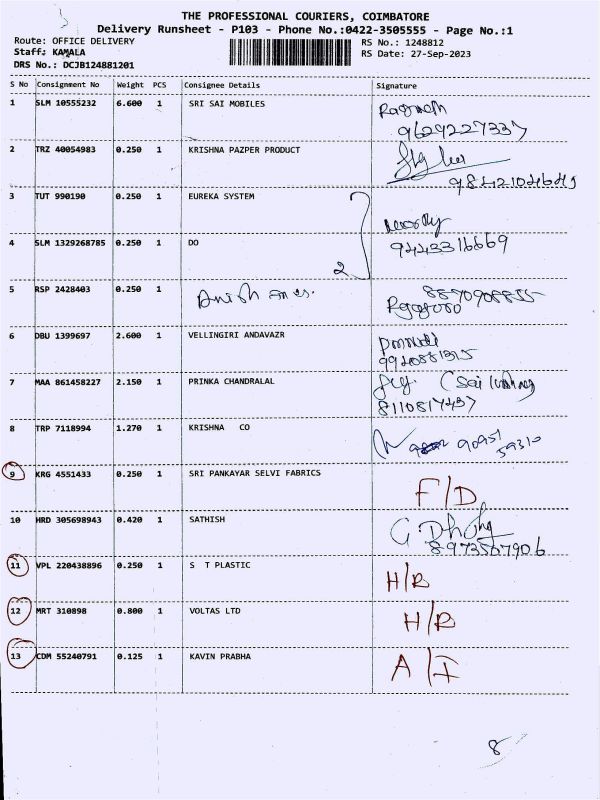 THE PROFESSIONAL COURIERS, COIMBATORE
Delivery Runsheet - P103 - Phone No.:0422-3505555 - Page No.:1
Route: OFFICE DELIVERY
Staff: KAMALA
DRS No.: DCJB124881201
RS No.: 1248812
RS Date: 27-Sep-2023
S No Consignment No Weight PCS Consignee Details Signature
1 SLM 10555232 6.600 1 SRI SAI MOBILES
9629227337
2 TRZ 40054983 0.250 1 KRISHNA PAZPER PRODUCT
9842104645
3 TUT 990190 0.250 1 EUREKA SYSTEM
4 SLM 1329268785 0.250 1 DO 2
9443316669
5 RSP 2428403 0.250 1
6 DBU 1399697 2.600 1 VELLINGIRI ANDAVAZR
7 MAA 861458227 2.150 1 PRINKA CHANDRALAL
8110817437
8 TRP 7118994 1.270 1 KRISHNA CO
90951
59310
9 KRG 4551433 0.250 1 SRI PANKAYAR SELVI FABRICS
F/D
10 HRD 305698943 0.420 1 SATHISH
8973507906
11 VPL 220438896 0.250 1 S T PLASTIC
H/R
12 MRT 310898 0.800 1 VOLTAS LTD
H/R
13 CDM 55240791 0.125 1 KAVIN PRABHA
A/I
8